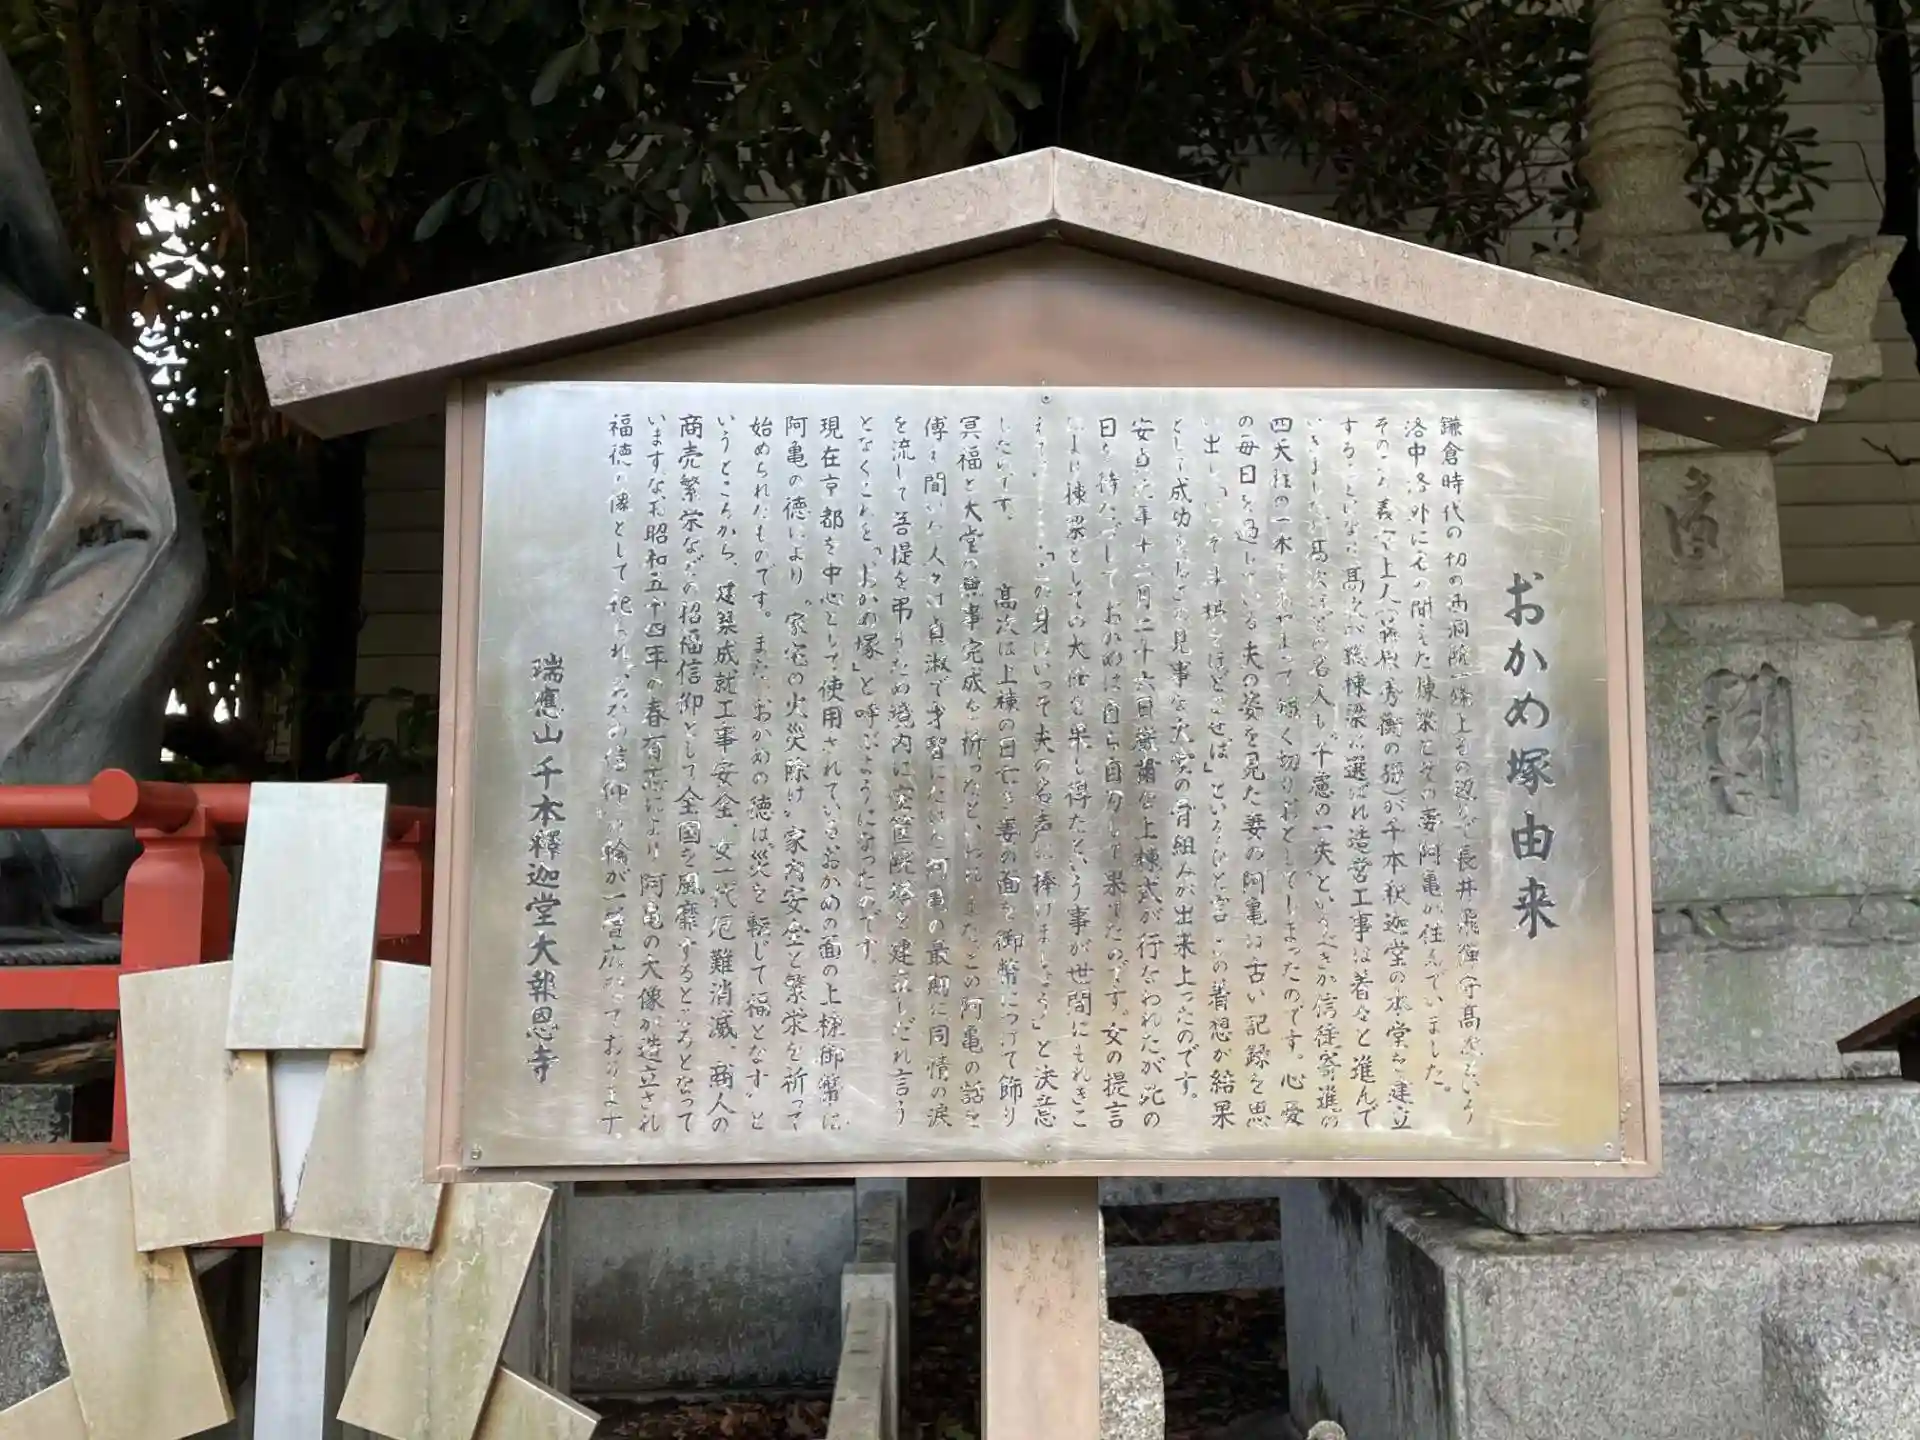 おかめ塚由来
鎌倉時代の初め西洞院一條上るの辺りに長井飛騨守高次という
洛中洛外に名の聞えた棟梁とその妻阿亀が住んでいました。
そのころ義空上人(藤原秀衡の孫)が千本釈迦堂の本堂を建立
することになり高次が総棟梁に選ばれ造営工事は着々と進んで
いきましたが高次ほどの名人も"千慮の一失"というべきか信徒寄進の
四天柱の一本をあやまって短く切りおとしてしまったのです。心憂
の毎日を過している夫の姿を見た妻の阿亀は古い記録を思
い出し「いっそ斗栱をほどこせば」というひと言、この着想が結果
として成功
見事な大堂の骨組みが出来上ったのです。
安貞元年十二月二十六日厳粛な上棟式が行なわれたが此の
日を待たずしておかめは自ら自刃して果てたのです。女の提言
により棟梁としての大任を果し得たという事が世間にもれきこ
えては
「この身はいっそ夫の名声に捧げましょう」と決意
したのです。 高次は上棟の日亡き妻の面を御幣につけて飾り
冥福と大堂の無事完成を祈ったといわれ、またこの阿亀の話を
伝え聞いた人々は貞淑で才智にたけた阿亀の最期に同情の涙
を流して菩提を弔うため境内に宝筐院塔を建立しだれ言う
となくこれを「おかめ塚」と呼ぶようになったのです。
現在京都を中心として使用されているおかめの面の上棟御幣は
阿亀の徳により"家宅の火災除け"家内安全と繁栄を祈って
始められたものです。 また、おかめの徳は"災を転じて福となす"と
いうところから、建築成就工事安全、女一代厄難消滅、商人の
商売繁栄などの招福信仰として全国を風靡するところとなって
いますなお昭和五十四年の春有志により阿亀の大像が造立され
福徳の像として祀られ、おかめ信仰の輪が一層広がっております。
瑞應山千本釋迦堂大報恩寺